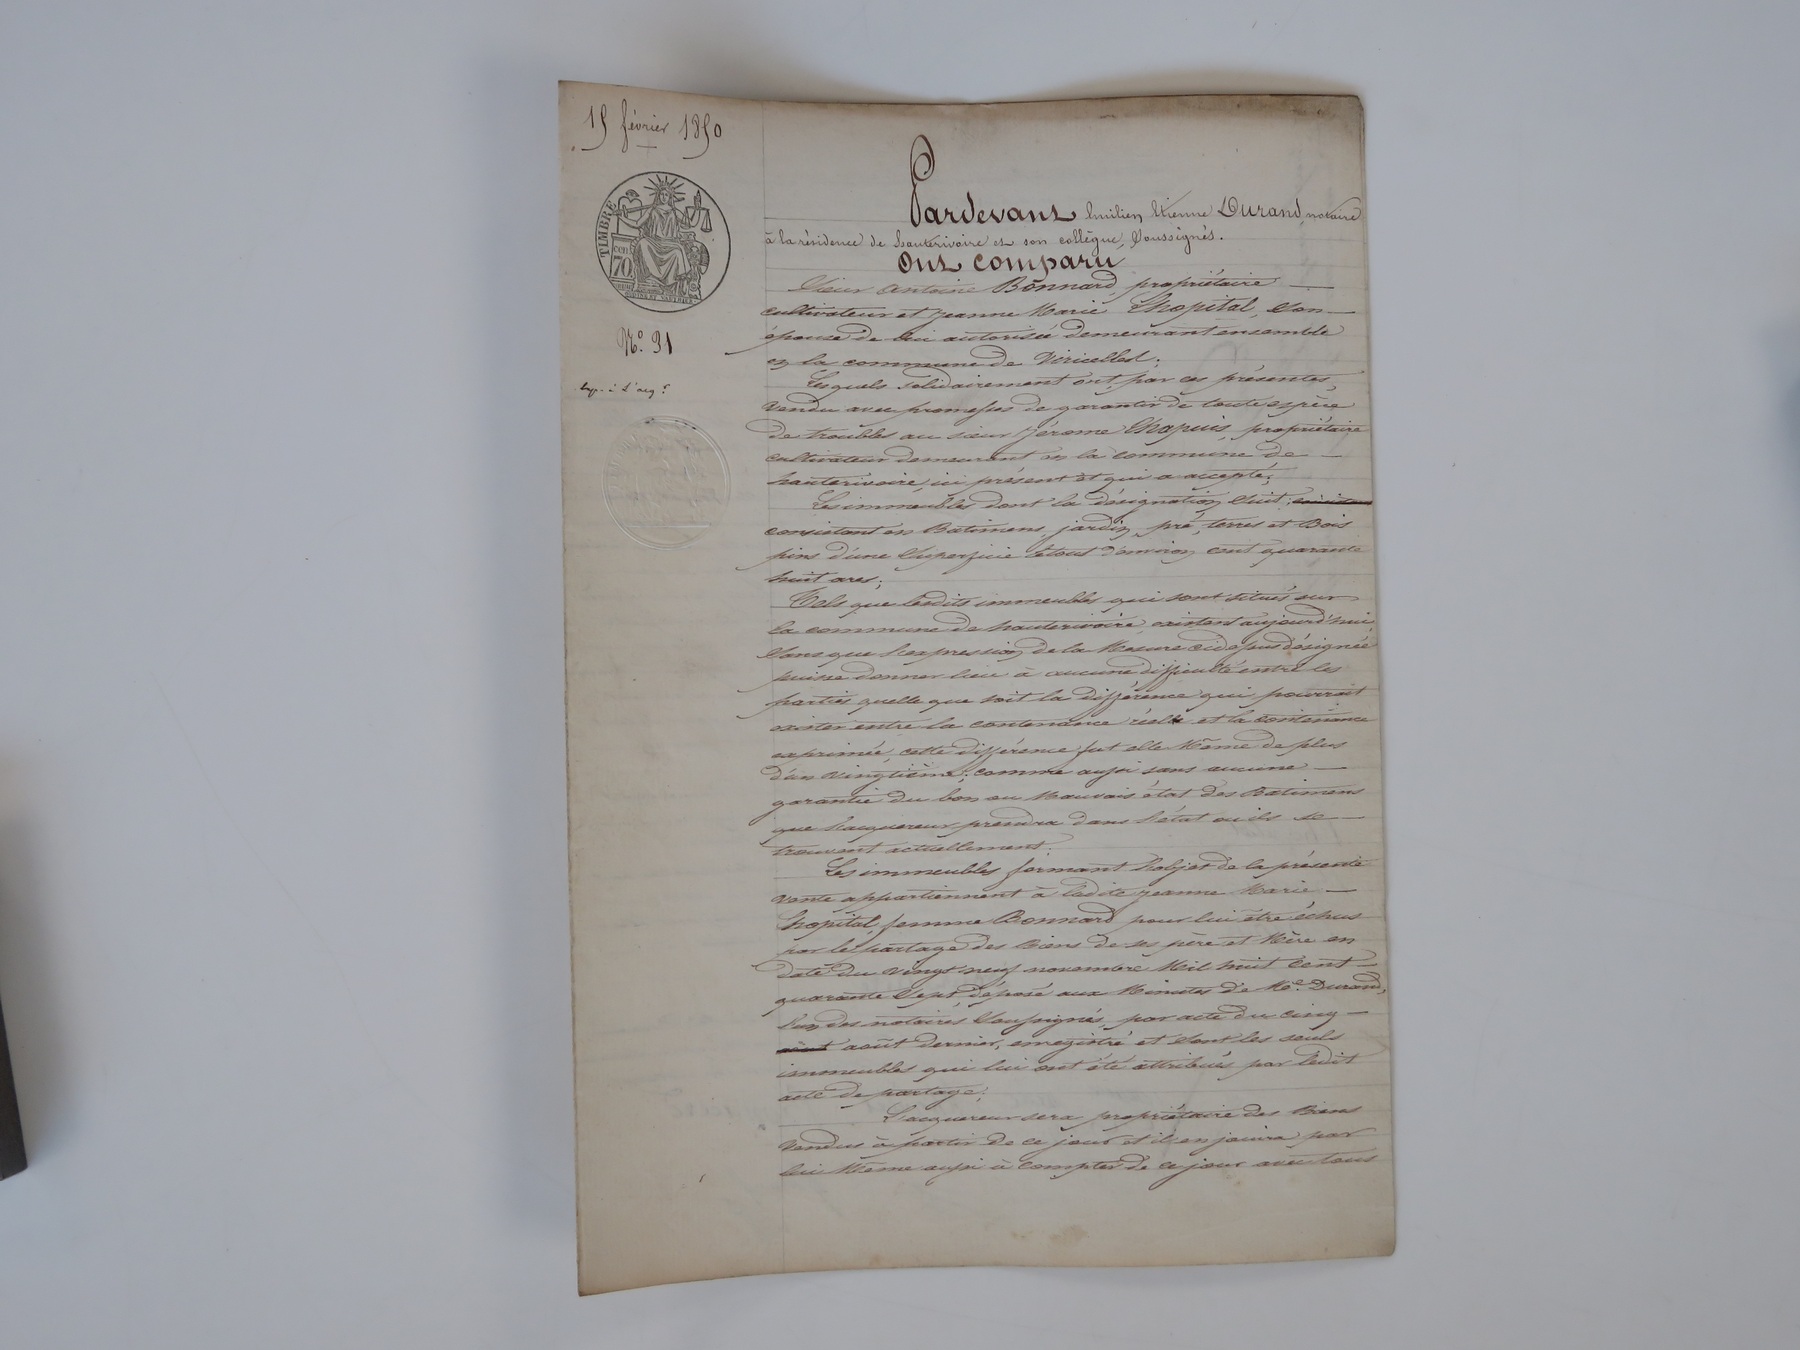 15 février 1850
TIMBRE
cen
70
N.° 31
Pardevant Emilien Etienne Durand, notaire
à la résidence de hauterivoire et son collègue, Soussignés.
Ont comparu
Sieur Antoine Bonnard, propriétaire
cultivateur et Jeanne Marie Lhopital, Son
épouse de lui autorisée demeurant ensemble
en la commune de Viricelles;
Lesquels solidairement ont, par ces présentes,
vendu avec promesses de garantir de toute espèce
de troubles au sieur Jérome Chapuis, propriétaire
cultivateur demeurant en la commune de
hauterivoire, ici présent et qui a accepté;
Les immeubles dont la désignation Suit,
consistant en Batimens, jardin, pré, terres et Bois
pins d'une Superficie le tout d'environ cent quarante
huit ares;
Tels que lesdits immeubles qui sont situés sur
la commune de hauterivoire, existent aujourd'hui,
Sans que l'expression de la Mesure cidessus désignée
puisse donner lieu à aucune difficulté entre les
parties quelle que soit la différence qui pourrait
exister entre la contenance réelle et la contenance
exprimée, cette différence fut elle Même de plus
d'un vingtième; comme aussi sans aucune
garantie du bon ou Mauvais état des Batimens
que l'acquereur prendra dans l'état où ils se
trouvent actuellement.
Les immeubles formant l'objet de la présente
vente appartiennent à ladite Jeanne Marie
Lhopital, femme Bonnard pour lui être échus
par le partage des Biens de ses père et Mère en
date du vingt neuf novembre Mil huit Cent
quarante Sept, déposé aux Minutes de M.e Durand,
l'un des notaires Soussignés, par acte du cinq
août dernier, enregistré et Sont les seuls
immeubles qui lui ont été attribués par ledit
acte de partage;
L'acquereur sera propriétaire des Biens
vendus à partir de ce jour et il en jouira par
lui Même aussi à compter de ce jour avec tous